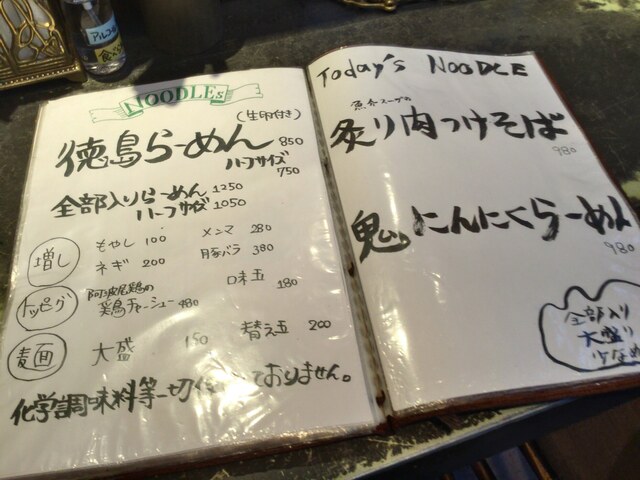 アルコール
NOODLEs
(生卵付き)
徳島らーめん 850
ハーフサイズ 750
全部入りらーめん 1250
ハーフサイズ 1050
増し
もやし 100 メンマ 280
ネギ 200 豚バラ 380
トッピング
阿波尾鶏の
鶏チャーシュー 480
味玉 180
麺
大盛 150 替え玉 200
化学調味料等一切使っておりません。
Today's NOODLE
魚介スープの
炙り肉つけそば
980
鬼にんにくらーめん
980
全部入り
大盛り
少なめ